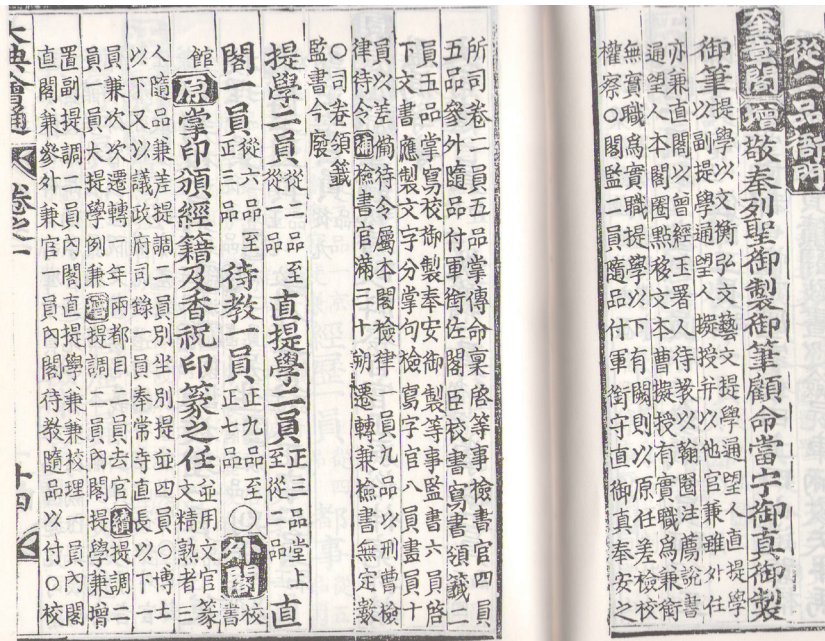 從二品衙門
奎章閣增敬奉列聖御製御筆顧命當宁御真御製
御筆提學以文衡弘文藝文提學通望人直提學
以副提學通望人擬授并以他官兼雖外任
亦兼直閣以曾經玉署人待教以翰圈注薦說書
通望人本閣圈點移文本曹擬授有實職爲兼銜
無實職爲實職提學以下有闕則以原任差檢校
權察○閣監二員隨品付軍銜守直御真奉安之
所司卷二員五品掌傳命稟啓等事檢書官四員
五品參外隨品付軍銜佐閣臣校書寫書領籤二
員五品掌寫校御製奉安御製等事監書六員啓
下文書應製文字分掌句檢寫字官八員畫員十
員以差備待令屬本閣檢律一員九品以刑曹檢
律待令補檢書官滿三十朔遷轉兼檢書無定數
○司卷領籤
監書今廢
提學二員從二品至從一品直提學二員正三品堂上至從二品直
閣一員從六品至正三品待教一員正九品至正七品○外閣校書
館原掌印頒經籍及香祝印篆之任並用文官篆文精熟者三
人隨品兼差提調二員別坐別提並四員○博士
以下又以議政府司錄一員奉常寺直長以下一
員兼次次遷轉一年兩都目二員去官續提調二
員一員大提學例兼增提調二員內閣提學兼增
置副提調二員內閣直提學兼兼校理一員內閣
直閣兼參外兼官一員內閣待教隨品以付○校
大典會通 卷之一 十四